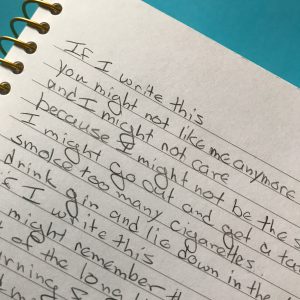 If I write this
you might not like me anymore
and I might not care
because I might not be the s
I might go out and get a ta
smoke too many cigarettes
drink gin and lie down in the
if I write this
might remember th
of the long